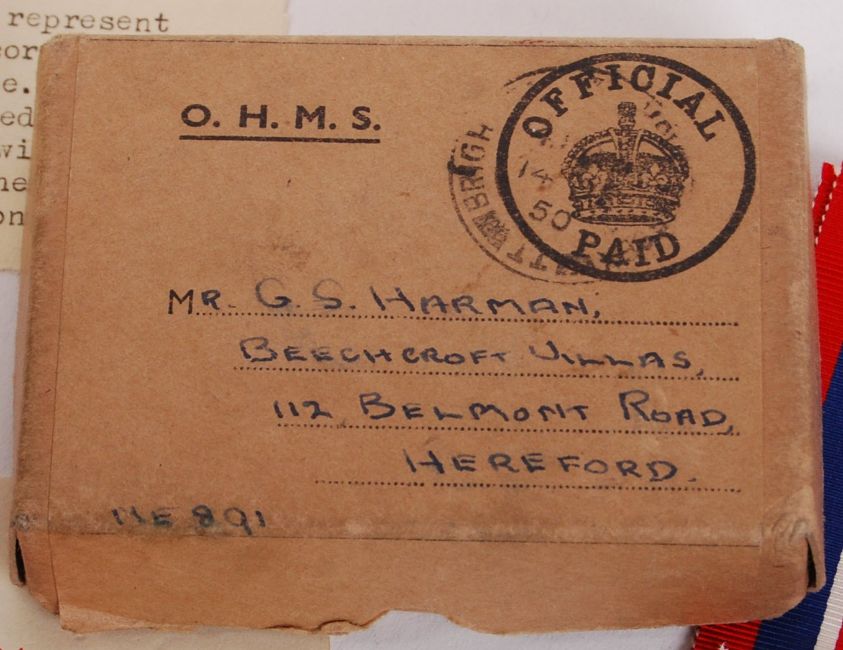 represent
cor
e.
ed
wi
he
on
O. H. M. S.
OFFICIAL
PAID
BRIGH
14
50
MR. G. S. HARMAN,
BEECHCROFT VILLAS,
112 BELMONT ROAD,
HEREFORD.